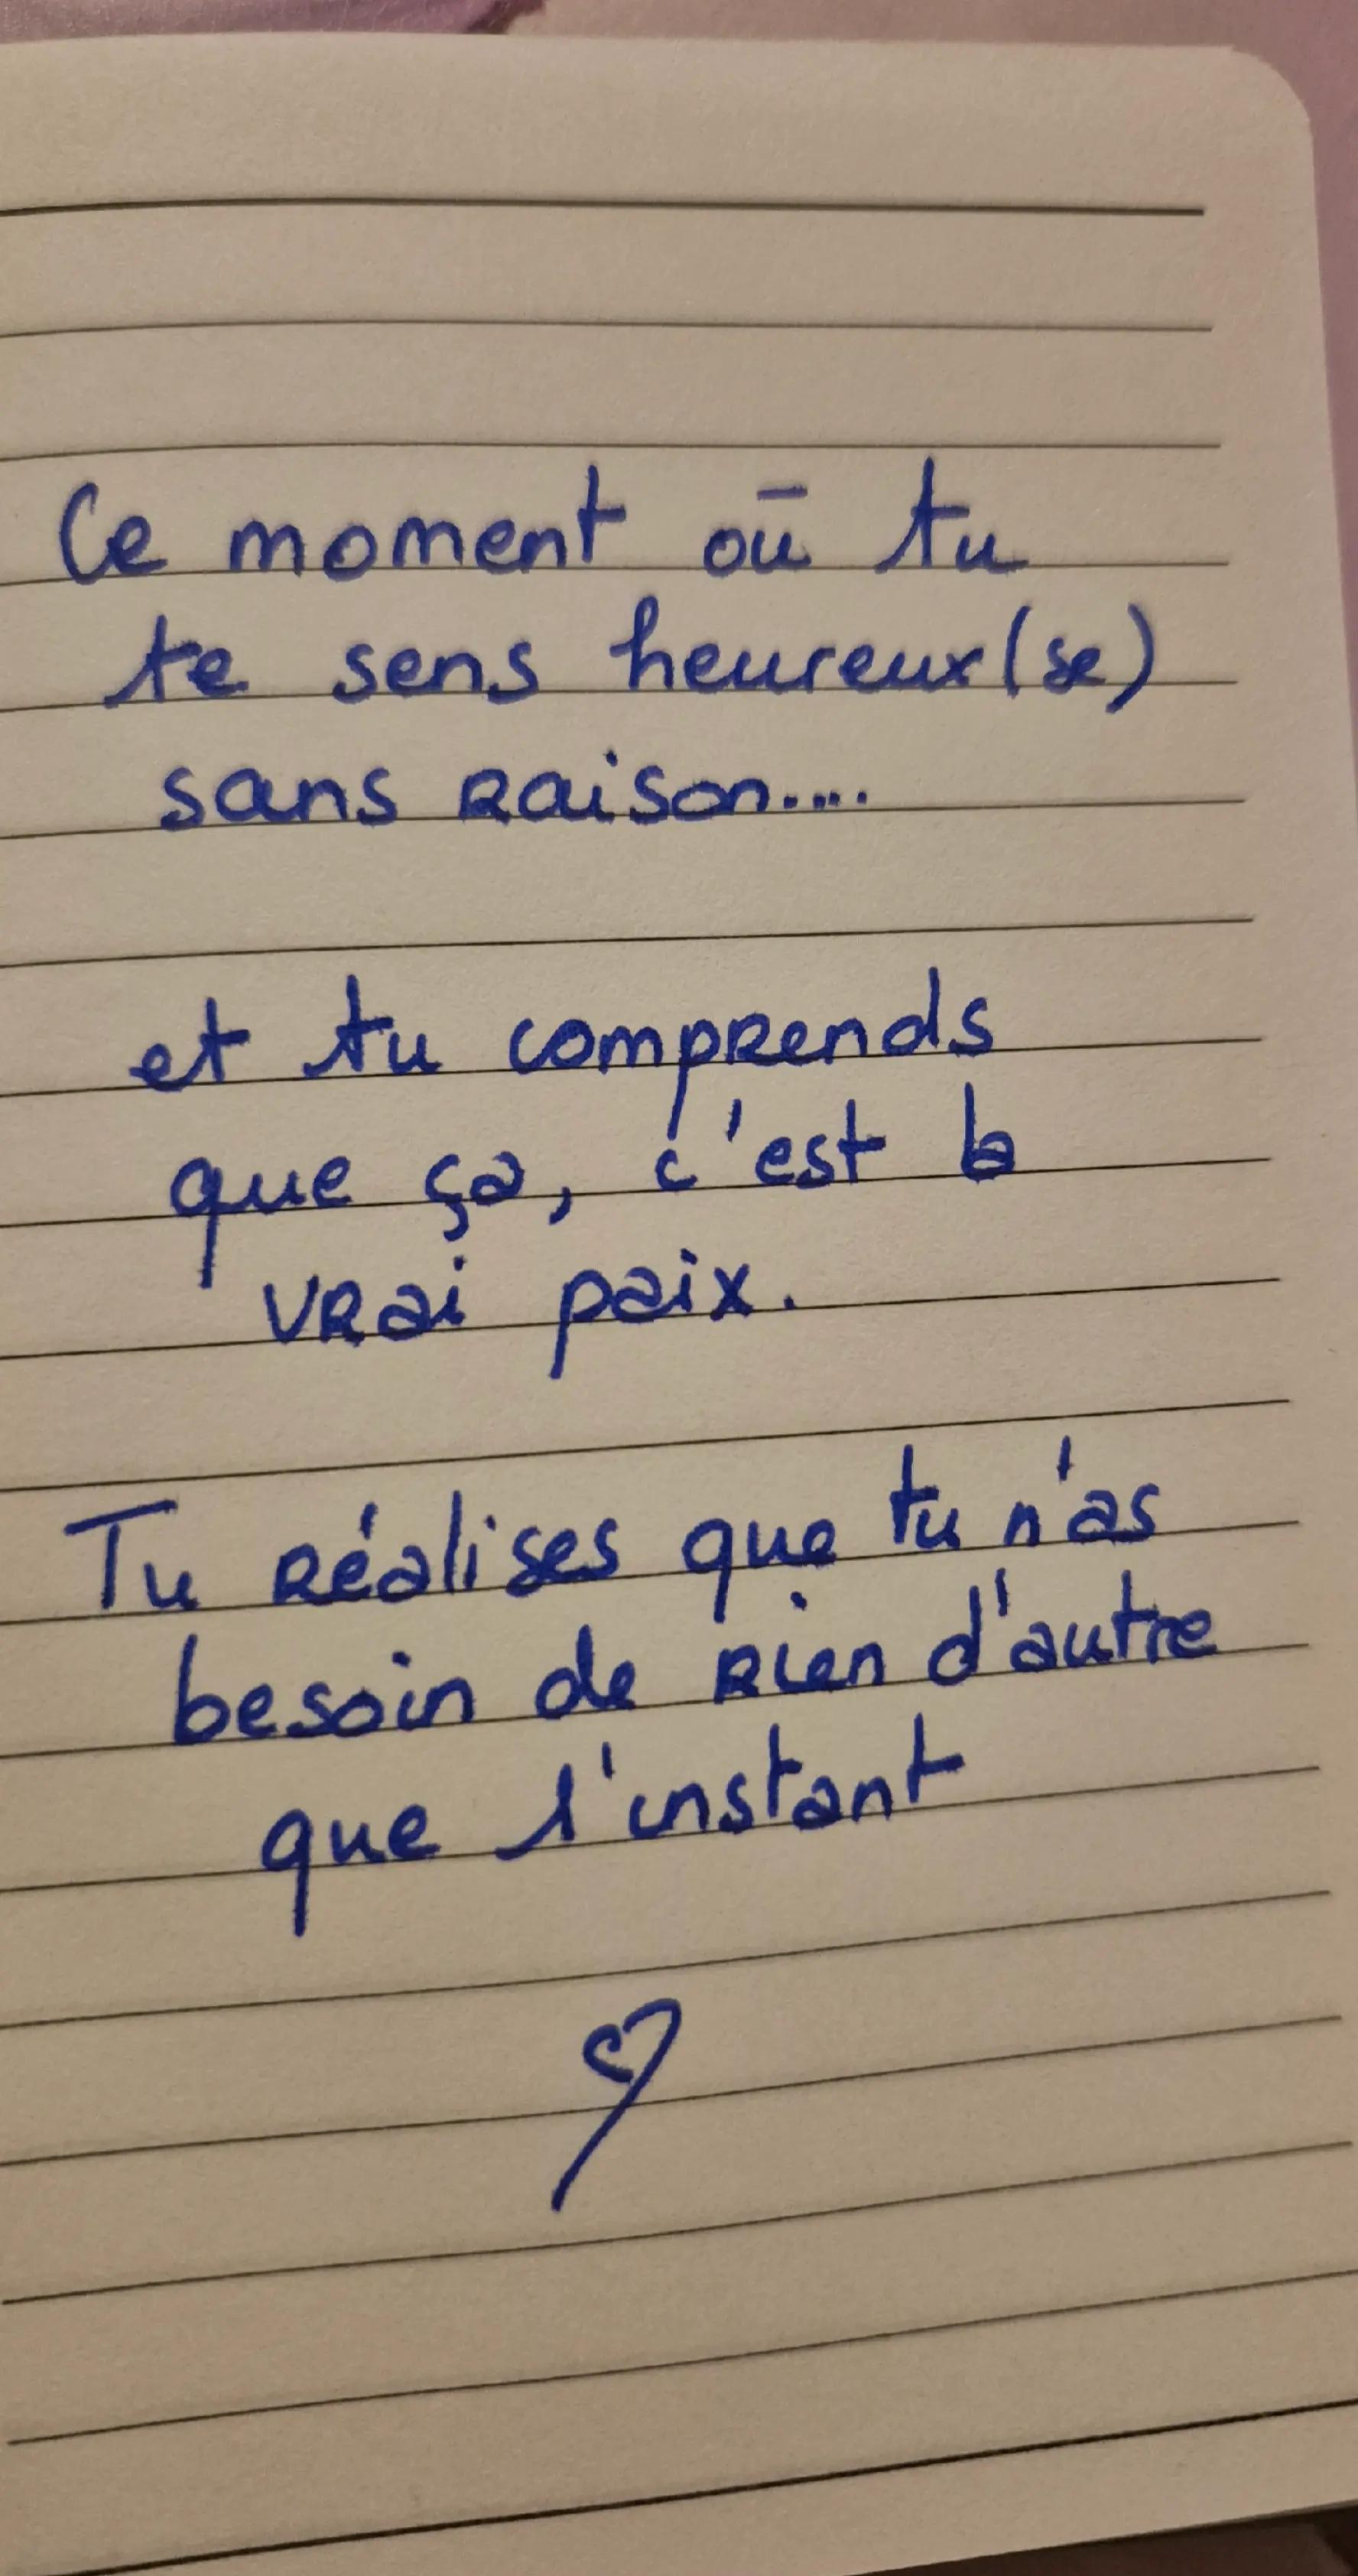 Ce moment où tu
te sens heureux(se)
sans raison....
et tu comprends
que ça, c'est la
vrai paix.
Tu réalises que tu n'as
besoin de rien d'autre
que l'instant